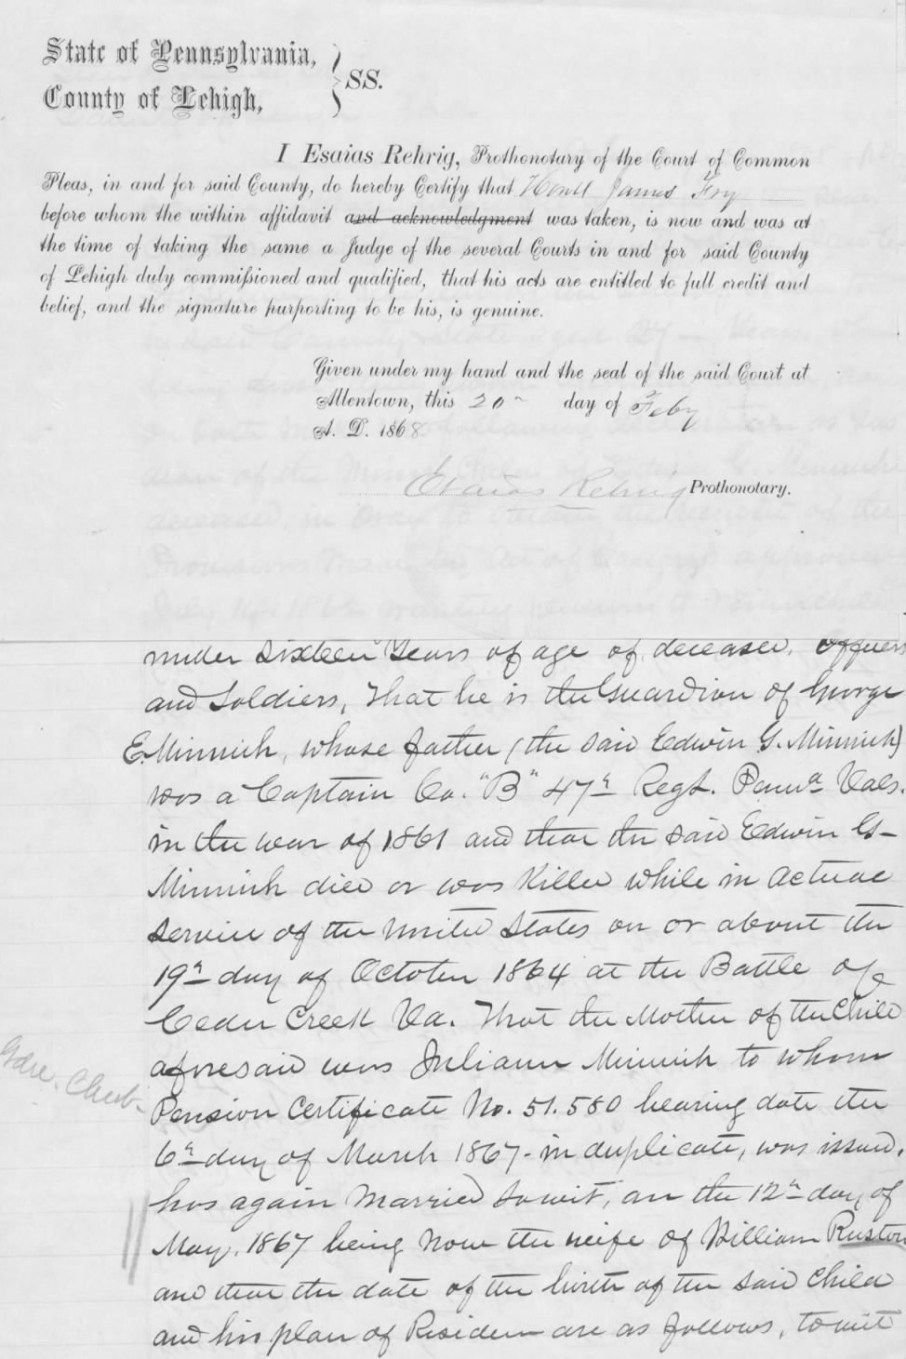 State of Pennsylvania,
County of Lehigh,
} SS.
I Esaias Rehrig, Prothonotary of the Court of Common
Pleas, in and for said County, do hereby Certify that Honbl James Fry
before whom the within affidavit and acknowledgment was taken, is now and was at
the time of taking the same a Judge of the several Courts in and for said County
of Lehigh duly commissioned and qualified, that his acts are entitled to full credit and
belief, and the signature purporting to be his, is genuine.
Given under my hand and the seal of the said Court at
Allentown, this 20 day of Feby
A. D. 1868
Esaias Rehrig Prothonotary.
under sixteen Years of age of deceased. officers
and Soldiers, That he is the Guardian of George
E. Minnich, whose father (the said Edwin G. Minnich)
was a Captain Co. "B" 47th Regt. Penna Vols.
in the war of 1861 and that the said Edwin G-
Minnich died or was Killed while in actual
service of the United States on or about the
19th day of October 1864 at the Battle of
Cedar Creek Va. That the Mother of the Child
aforesaid was Juliann Minnich to whom
Pension Certificate No. 51.580 bearing date the
6th day of March 1867- in duplicate, was issued,
has again Married to wit, on the 12th day of
May, 1867 being now the wife of William Ruston
and that the date of the birth of the said Child
and his place of Residence are as follows, to wit